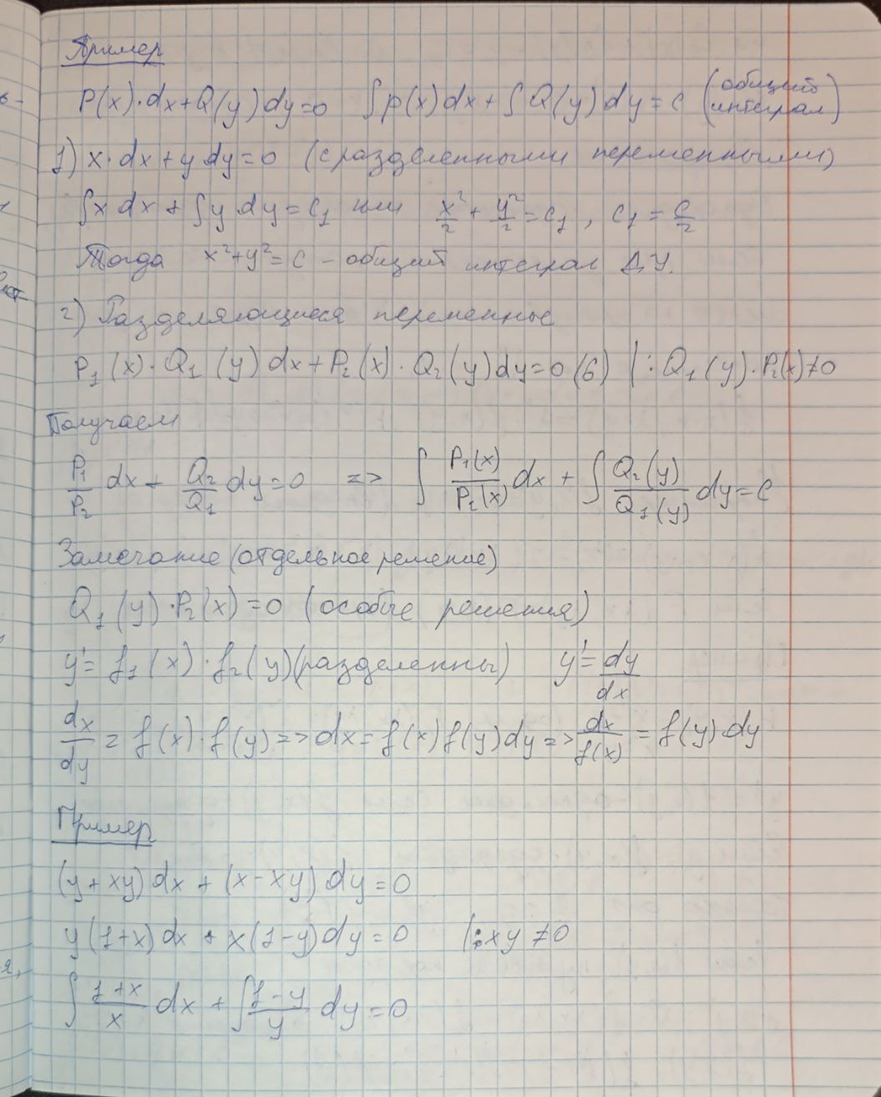 Пример
P(x)·dx+Q(y)dy=0 ∫p(x)dx+∫Q(y)dy=c (общий интеграл)
1) x·dx+y dy=0 (с разделенными переменными)
∫x dx+∫y dy=c₁ или x²/2+y²/2=c₁, c₁=c/2
Тогда x²+y²=c – общий интеграл Д.У.
2) Разделяющиеся переменные
P₁(x)·Q₁(y)dx+P₂(x)·Q₂(y)dy=0 (6) |:Q₁(y)·P₂(x)≠0
Получаем
P₁/P₂ dx+ Q₂/Q₁ dy=0 => ∫ P₁(x)/P₂(x) dx + ∫ Q₂(y)/Q₁(y) dy=c
Замечание (отдельное решение)
Q₁(y)·P₂(x)=0 (особые решения)
y'=f₁(x)·f₂(y)(разделенны) y'=dy/dx
dx/dy=f(x)·f(y)=>dx=f(x)f(y)dy=>dx/f(x)=f(y)·dy
Пример
(y+xy)dx+(x-xy)dy=0
y(1+x)dx+x(1-y)dy=0 |:xy≠0
∫ 1+x/x dx+∫ 1-y/y dy=0